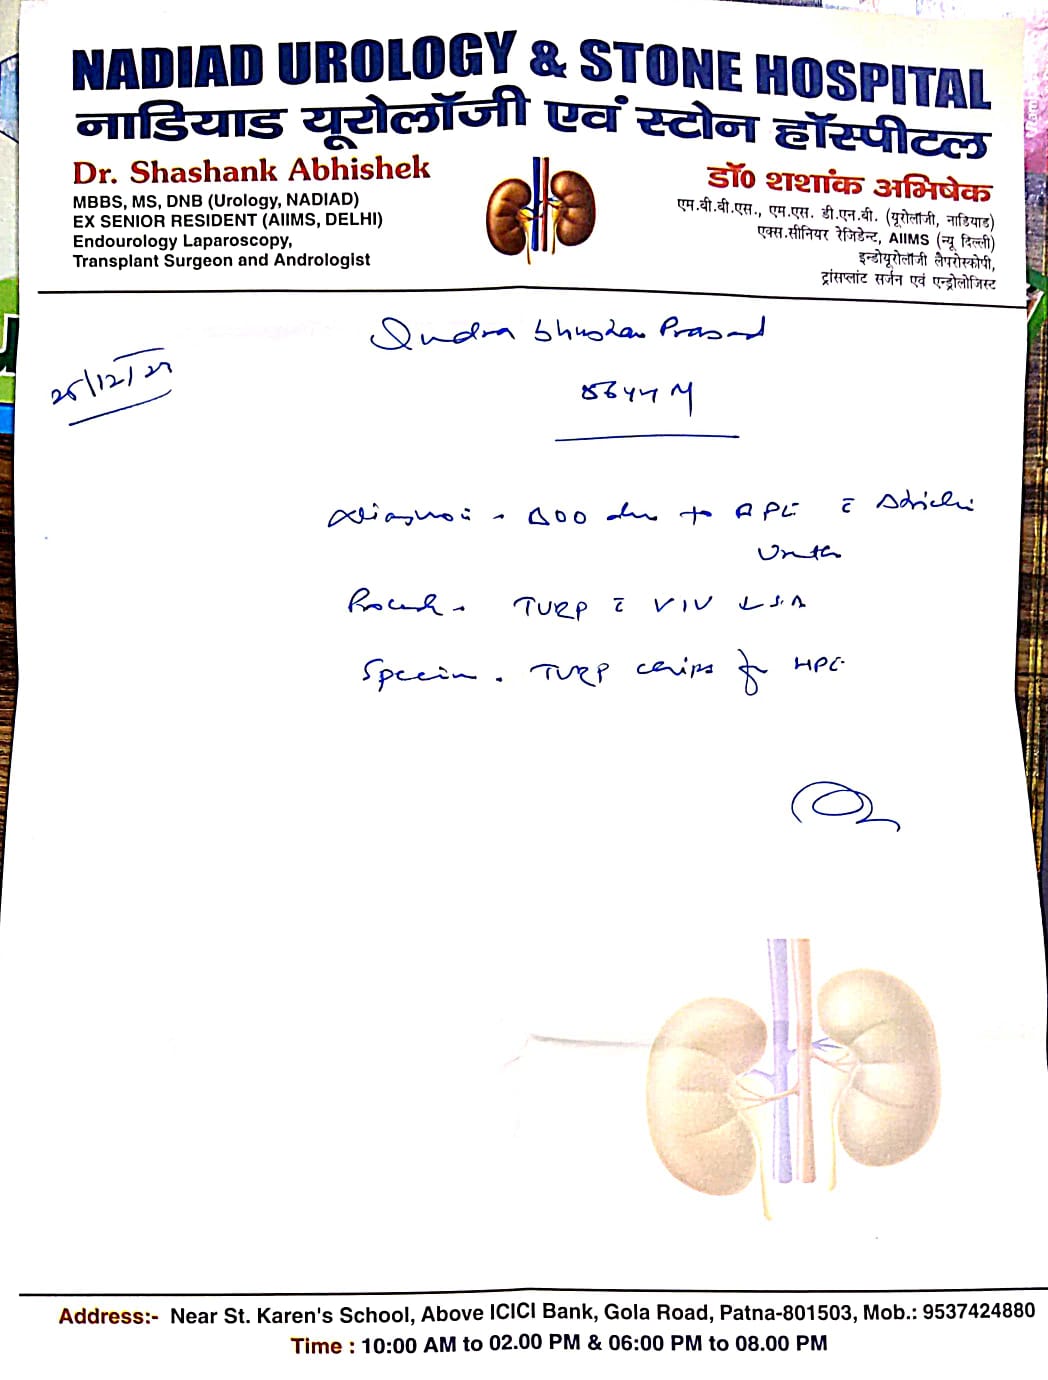 NADIAD UROLOGY & STONE HOSPITAL
नाडियाड यूरोलॉजी एवं स्टोन हॉस्पीटल
Dr. Shashank Abhishek
MBBS, MS, DNB (Urology, NADIAD)
EX SENIOR RESIDENT (AIIMS, DELHI)
Endourology Laparoscopy,
Transplant Surgeon and Andrologist
डॉ० शशांक अभिषेक
एम.बी.बी.एस., एम.एस. डी.एन.बी. (यूरोलॉजी, नाडियाड)
एक्स.सीनियर रेजिडेन्ट, AIIMS (न्यू दिल्ली)
इन्डोयूरोलॉजी लैपरोस्कोपी,
ट्रांसप्लांट सर्जन एवं एन्ड्रोलोजिस्ट
Indra bhushan Prasad
25/12/21
M
BOO due to BPE c̄
TURP c̄ VIU
TURP chips for HPE
Address:- Near St. Karen's School, Above ICICI Bank, Gola Road, Patna-801503, Mob.: 9537424880
Time : 10:00 AM to 02.00 PM & 06:00 PM to 08.00 PM